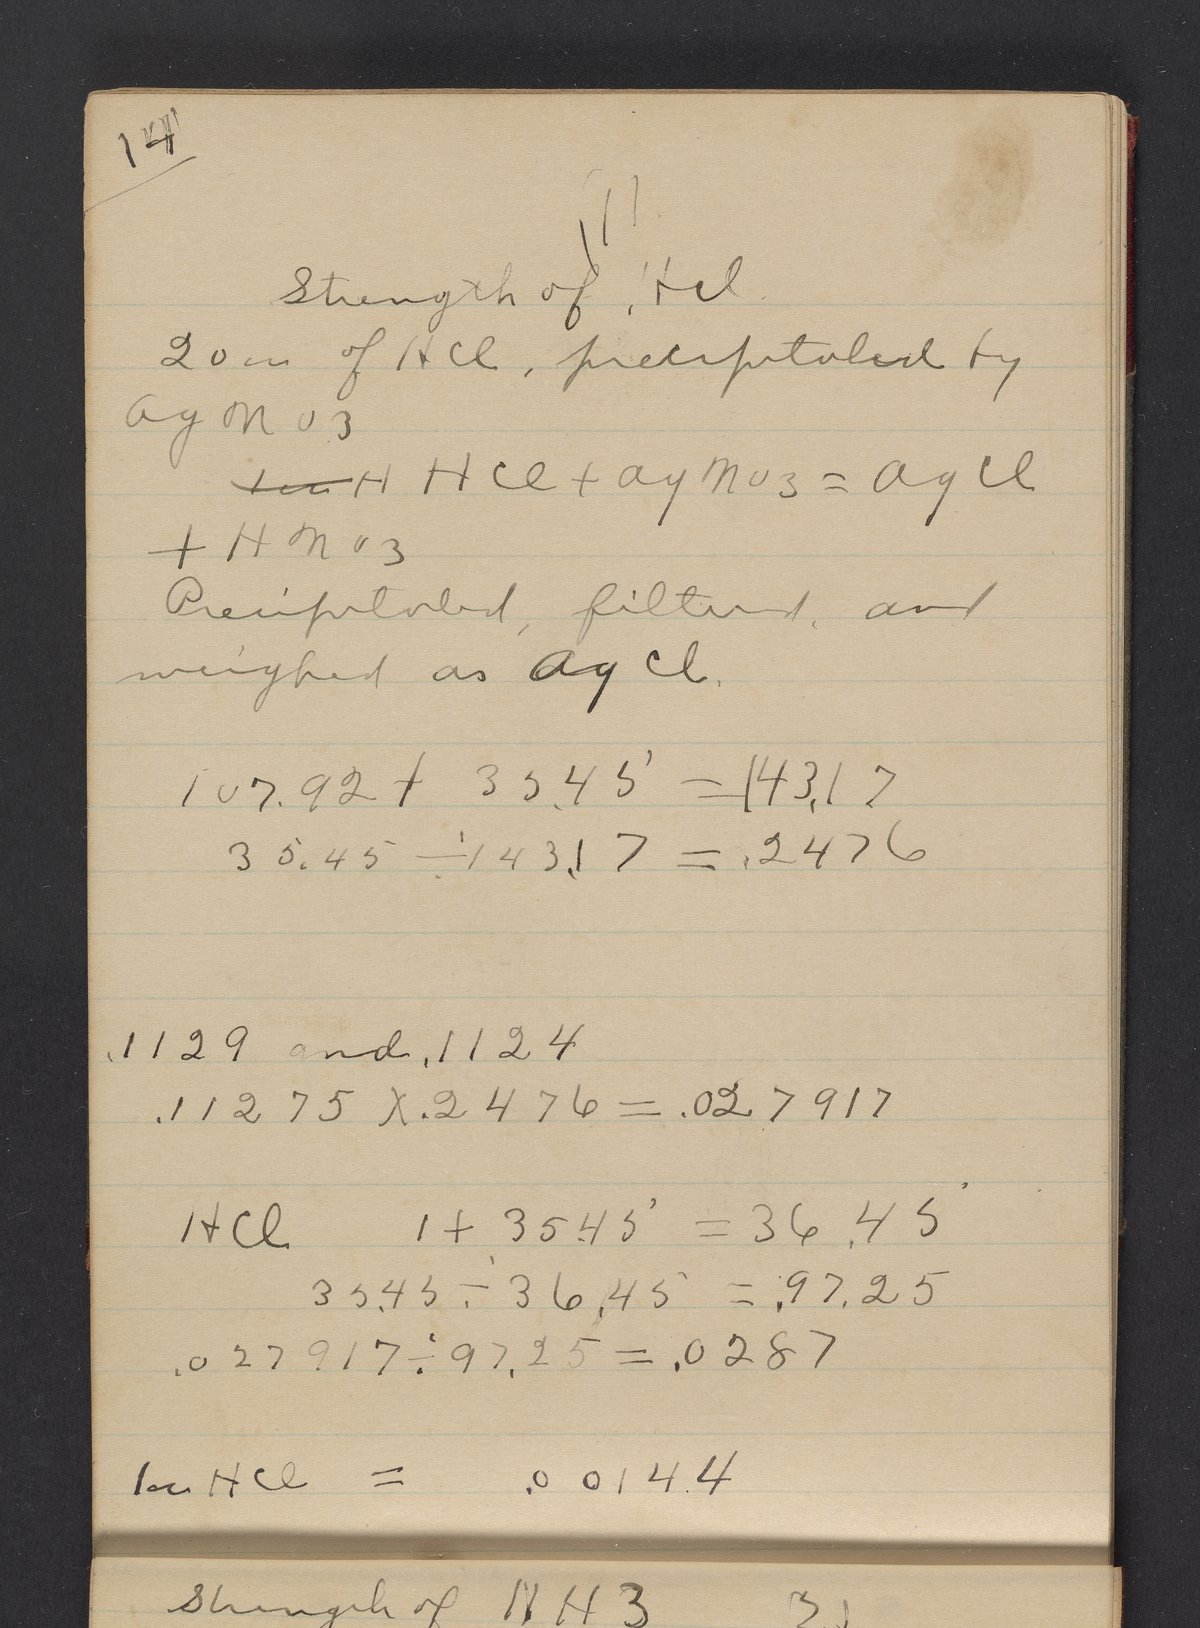 14
Strength of HCl.
20cc of HCl, precipitated by
AgNO3
HCl + AgNO3 = AgCl
+ HNO3
Precipitated, filtered, and
weighed as AgCl.
107.92 + 35.45 = 143.17
35.45 ÷ 143.17 = .2476
.1129 and .1124
.11275 X .2476 = .027917
HCl 1 + 35.45 = 36.45
35.45 ÷ 36.45 = .97.25
.027917 ÷ 97.25 = .0287
1cc HCl = .00144
Strength of NH3